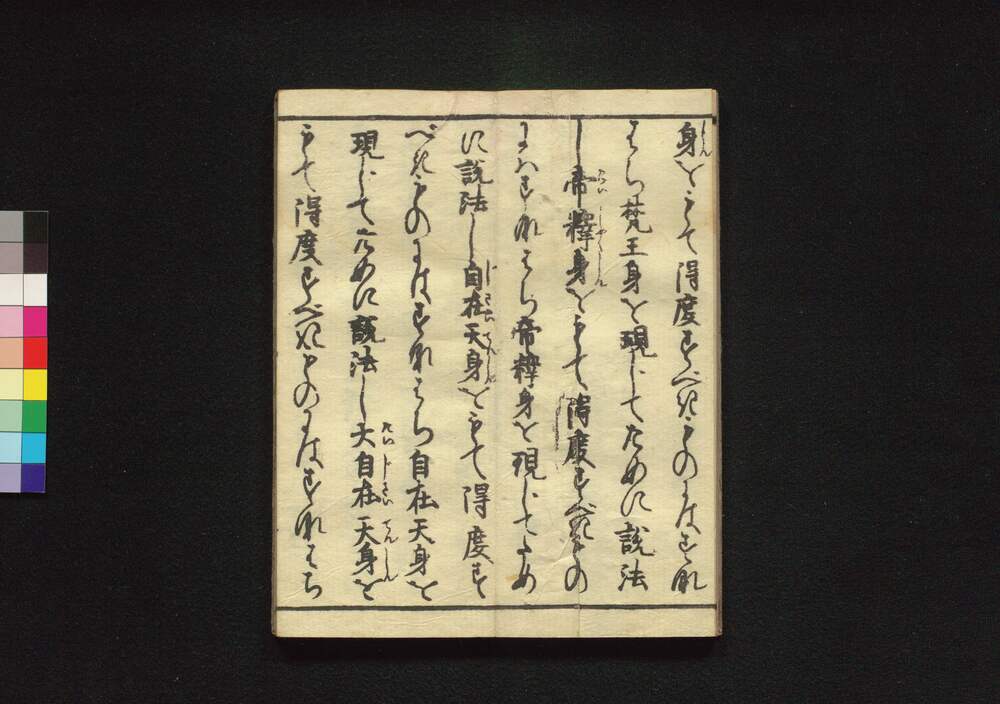 身をもて得度すべきものにはすな
はち梵王身を現じてために説法
し帝釋身をもて得度すべきもの
にはすなはち帝釋身を現じてため
に説法し自在天身をもて得度す
べきものにはすなはち自在天身を
現じてために説法し大自在天身を
もて得度すべきものにはすなはち